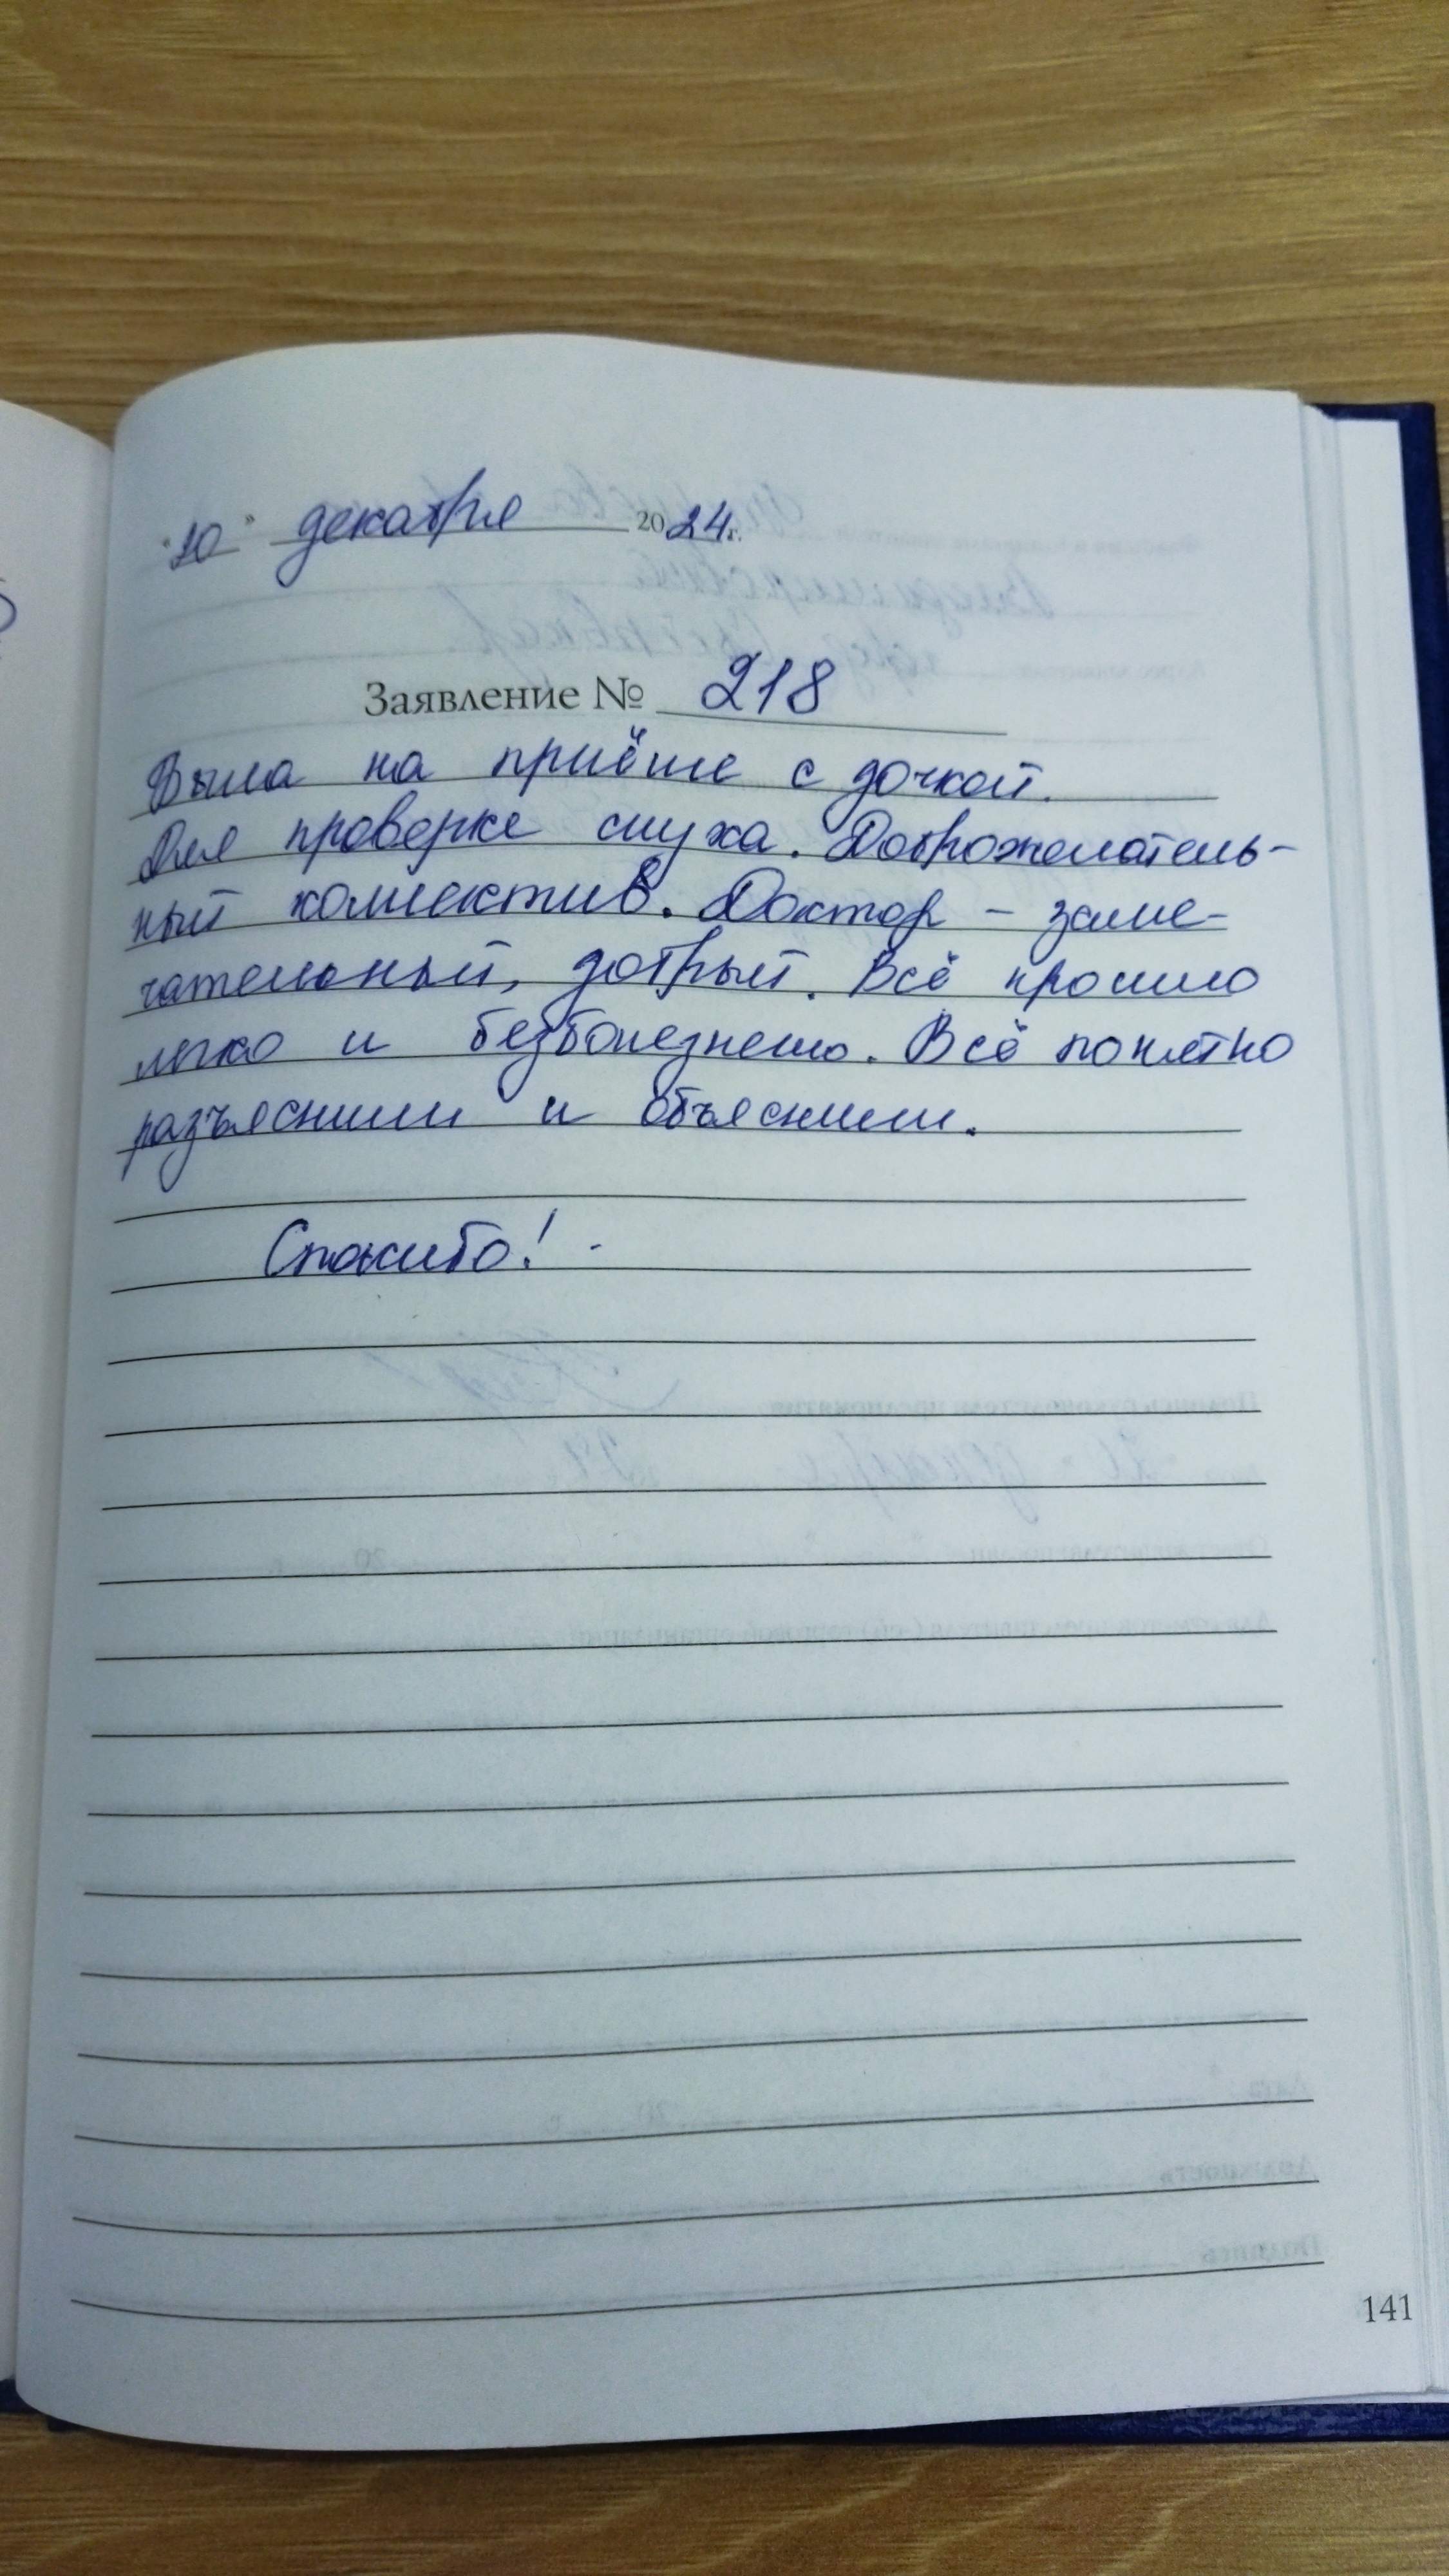 "10" декабря 2024г.
Заявление № 218
Была на приёме с дочкой.
Для проверке слуха. Доброжелатель-
ный коллектив. Доктор - заме-
чательный, добрый. Всё прошло
легко и безболезнено. Всё понятно
разъяснили и объяснили.
Спасибо!
141